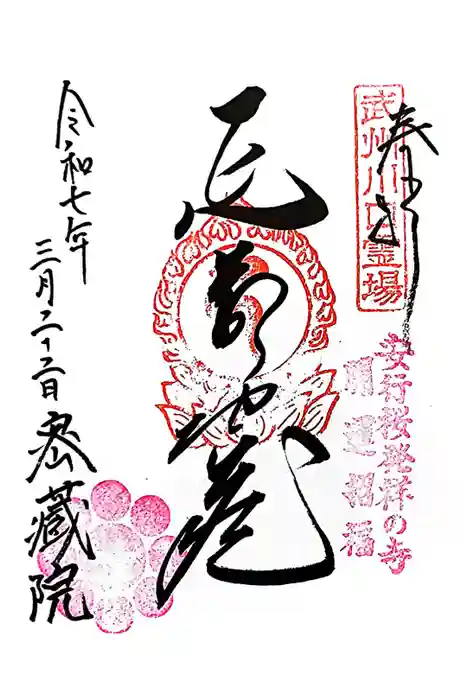 奉拝
武州川口霊場
安行桜発祥の寺
開運招福
延命地蔵
令和七年
三月二十二日
密藏院